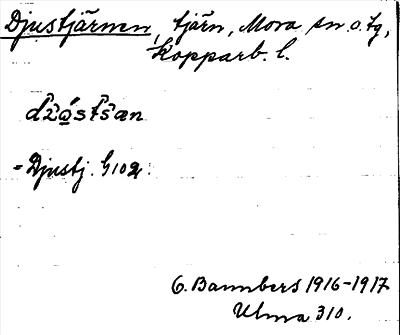 Djustjärnen, tjärn, Mora sn o. tg,
Kopparb. l.
= Djustj. G102.
O. Bannbers 1916-1917
Ulma 310.